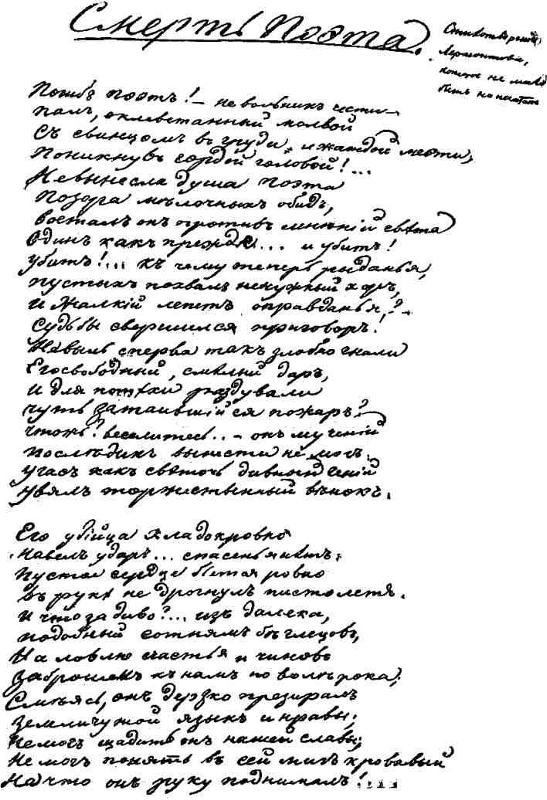 Смерть Поэта.
Стихотвореніе
Лермонтова,
которое не може
быть напечатан
Погибъ поэтъ! — невольникъ чести —
палъ, оклеветанный молвой
Съ свинцомъ въ груди, и жаждой мести,
Поникнувъ гордой головой!...
Невынесла душа поэта
Позора мѣлочныхъ обидъ,
Возсталъ онъ противъ мнѣній свѣта
Одинъ какъ прежде... и убитъ!
убитъ!... къ чему теперь рыданья,
пустыхъ похвалъ ненужный хоръ,
и Жалкій лепетъ оправданья?
Судьбы свершился приговоръ!
Невыль сперва такъ злобно гнали
Его свободный, смѣлый даръ,
И для потѣхи раздували
чуть затаившійся пожаръ?
чтожъ? веселитесь... — онъ мученій
послѣднихъ вынести не могъ.
угасъ какъ свѣточъ дивный геній
увялъ торжественный вѣнокъ.
Его убійца хладокровно
Навелъ ударъ... спасенья нѣтъ:
Пустое сердце бьется ровно
въ рукѣ не дрогнулъ пистолетъ.
и что за диво?... изъ далека,
подобный сотнямъ бѣглецовъ,
На ловлю счастья и чиновъ
Заброшенъ къ намъ по волѣ рока;
Смѣясь, онъ дерзко презиралъ
Земли чужой языкъ и нравы;
Не могъ щадить онъ нашей славы;
Не могъ понять въ сей мигъ кровавый
На что онъ руку поднималъ!....